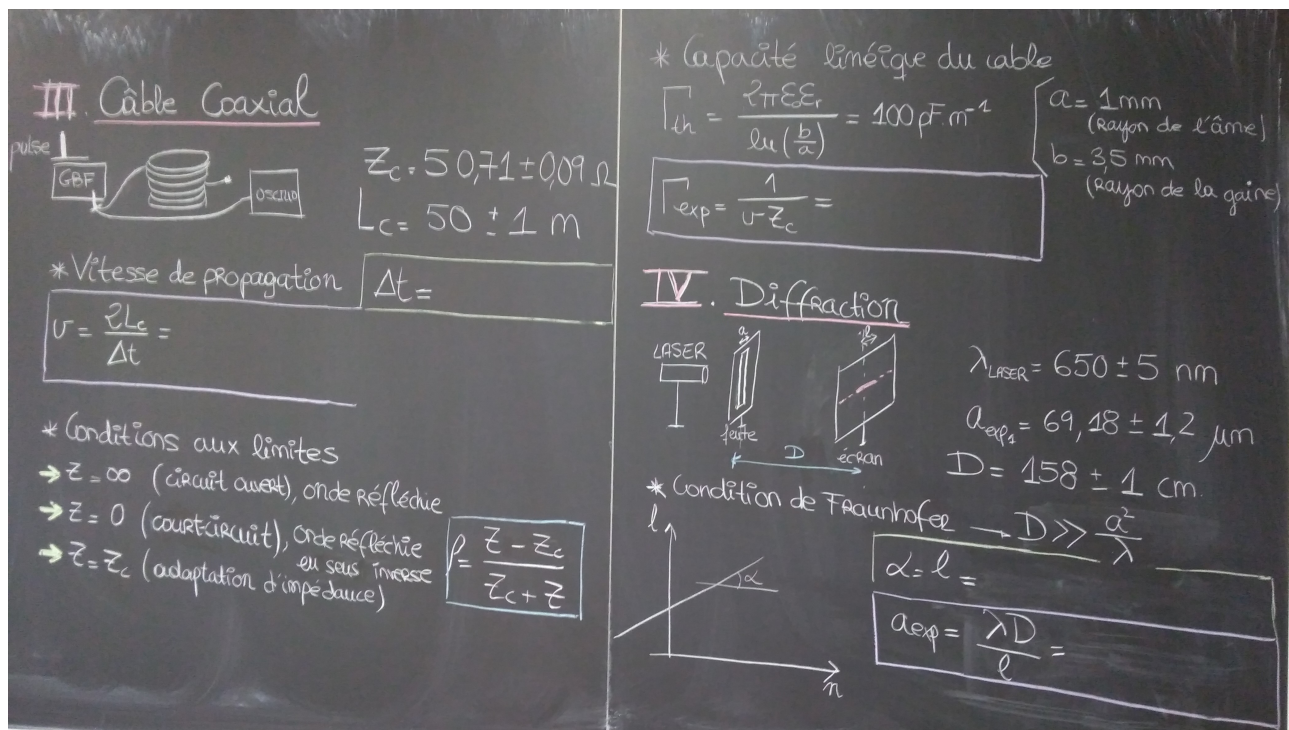 III. Câble Coaxial
pulse
GBF
OSCILLO
Zc = 50,71 ± 0,09 Ω
Lc = 50 ± 1 m
* Vitesse de propagation
Δt =
v = 2Lc / Δt =
* Conditions aux limites
→ Z = ∞ (circuit ouvert), onde réfléchie
→ Z = 0 (court-circuit), onde réfléchie
en sens inverse
→ Z = Zc (adaptation d'impédance)
ρ = (Z - Zc) / (Zc + Z)
* Capacité linéique du cable
Γth = 2πε₀εr / ln(b/a) = 100 pF.m⁻¹
a = 1 mm
(rayon de l'âme)
b = 3,5 mm
(rayon de la gaine)
Γexp = 1 / (v Zc) =
IV. Diffraction
LASER
a
l
fente
écran
D
λLASER = 650 ± 5 nm
aexp₁ = 69,18 ± 1,2 μm
D = 158 ± 1 cm
* Condition de Fraunhofer → D >> a² / λ
l
α
n
α = l =
aexp = λD / l =